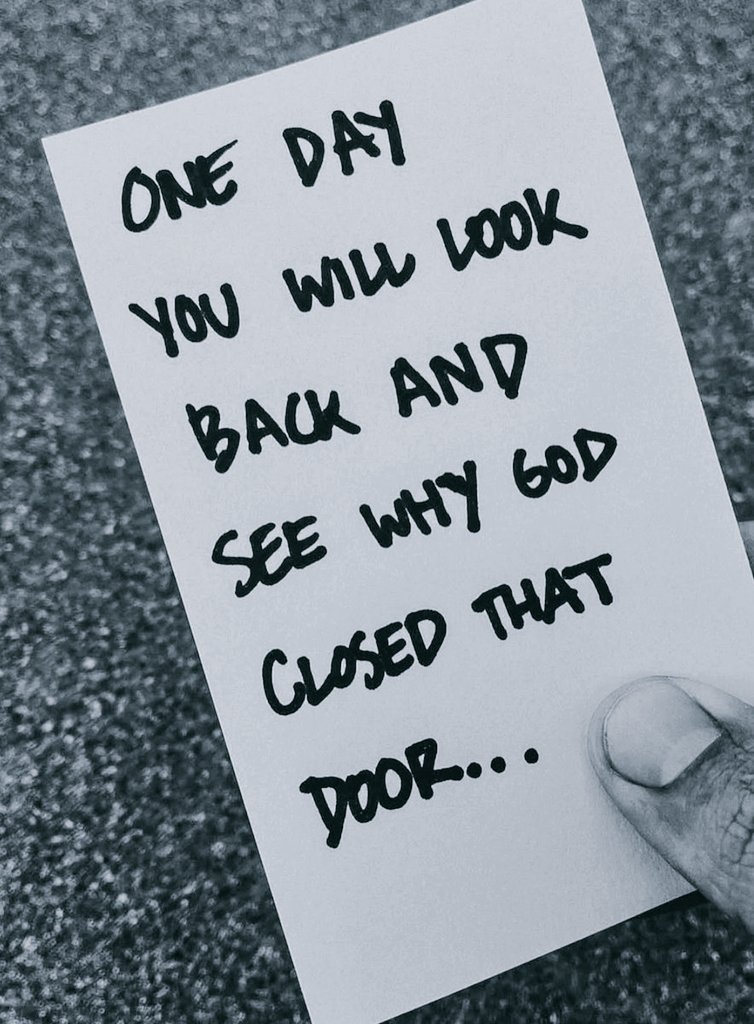 ONE DAY
YOU WILL LOOK
BACK AND
SEE WHY GOD
CLOSED THAT
DOOR...